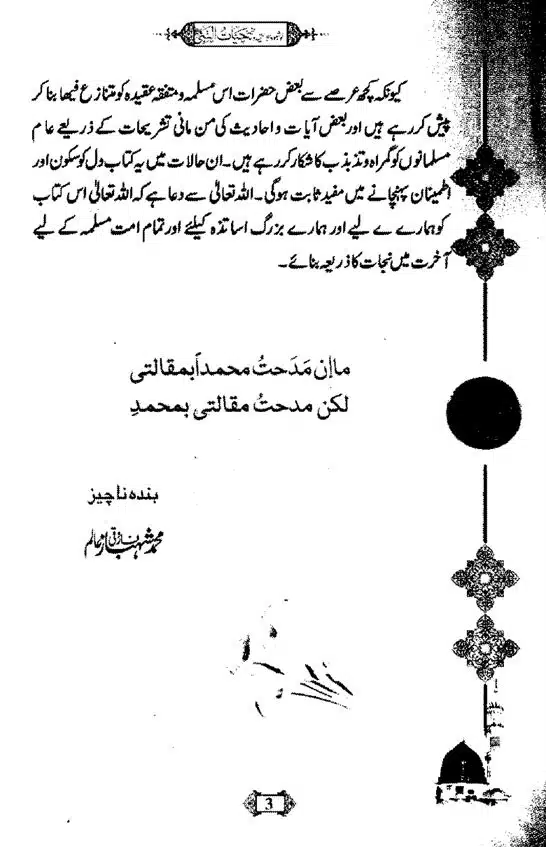 حیات النبی
کیونکہ کچھ عرصے سے بعض حضرات اس مسلمہ و متفقہ عقیدہ کو متنازع فیھا بنا کر
پیش کر رہے ہیں اور بعض آیات و احادیث کی من مانی تشریحات کے ذریعے عام
مسلمانوں کو گمراہ و تذبذب کا شکار کر رہے ہیں۔ ان حالات میں یہ کتاب دل کو سکون اور
اطمینان پہنچانے میں مفید ثابت ہوگی۔ اللہ تعالیٰ سے دعا ہے کہ اللہ تعالیٰ اس کتاب
کو ہمارے ے لیے اور ہمارے بزرگ اساتذہ کیلئے اور تمام امت مسلمہ کے لیے
آخرت میں نجات کا ذریعہ بنائے۔
ماإن مَدَحتُ محمداً بمقالتی
لکن مدحتُ مقالتی بمحمدِ
بندہ ناچیز
محمد شہباز عالم
3